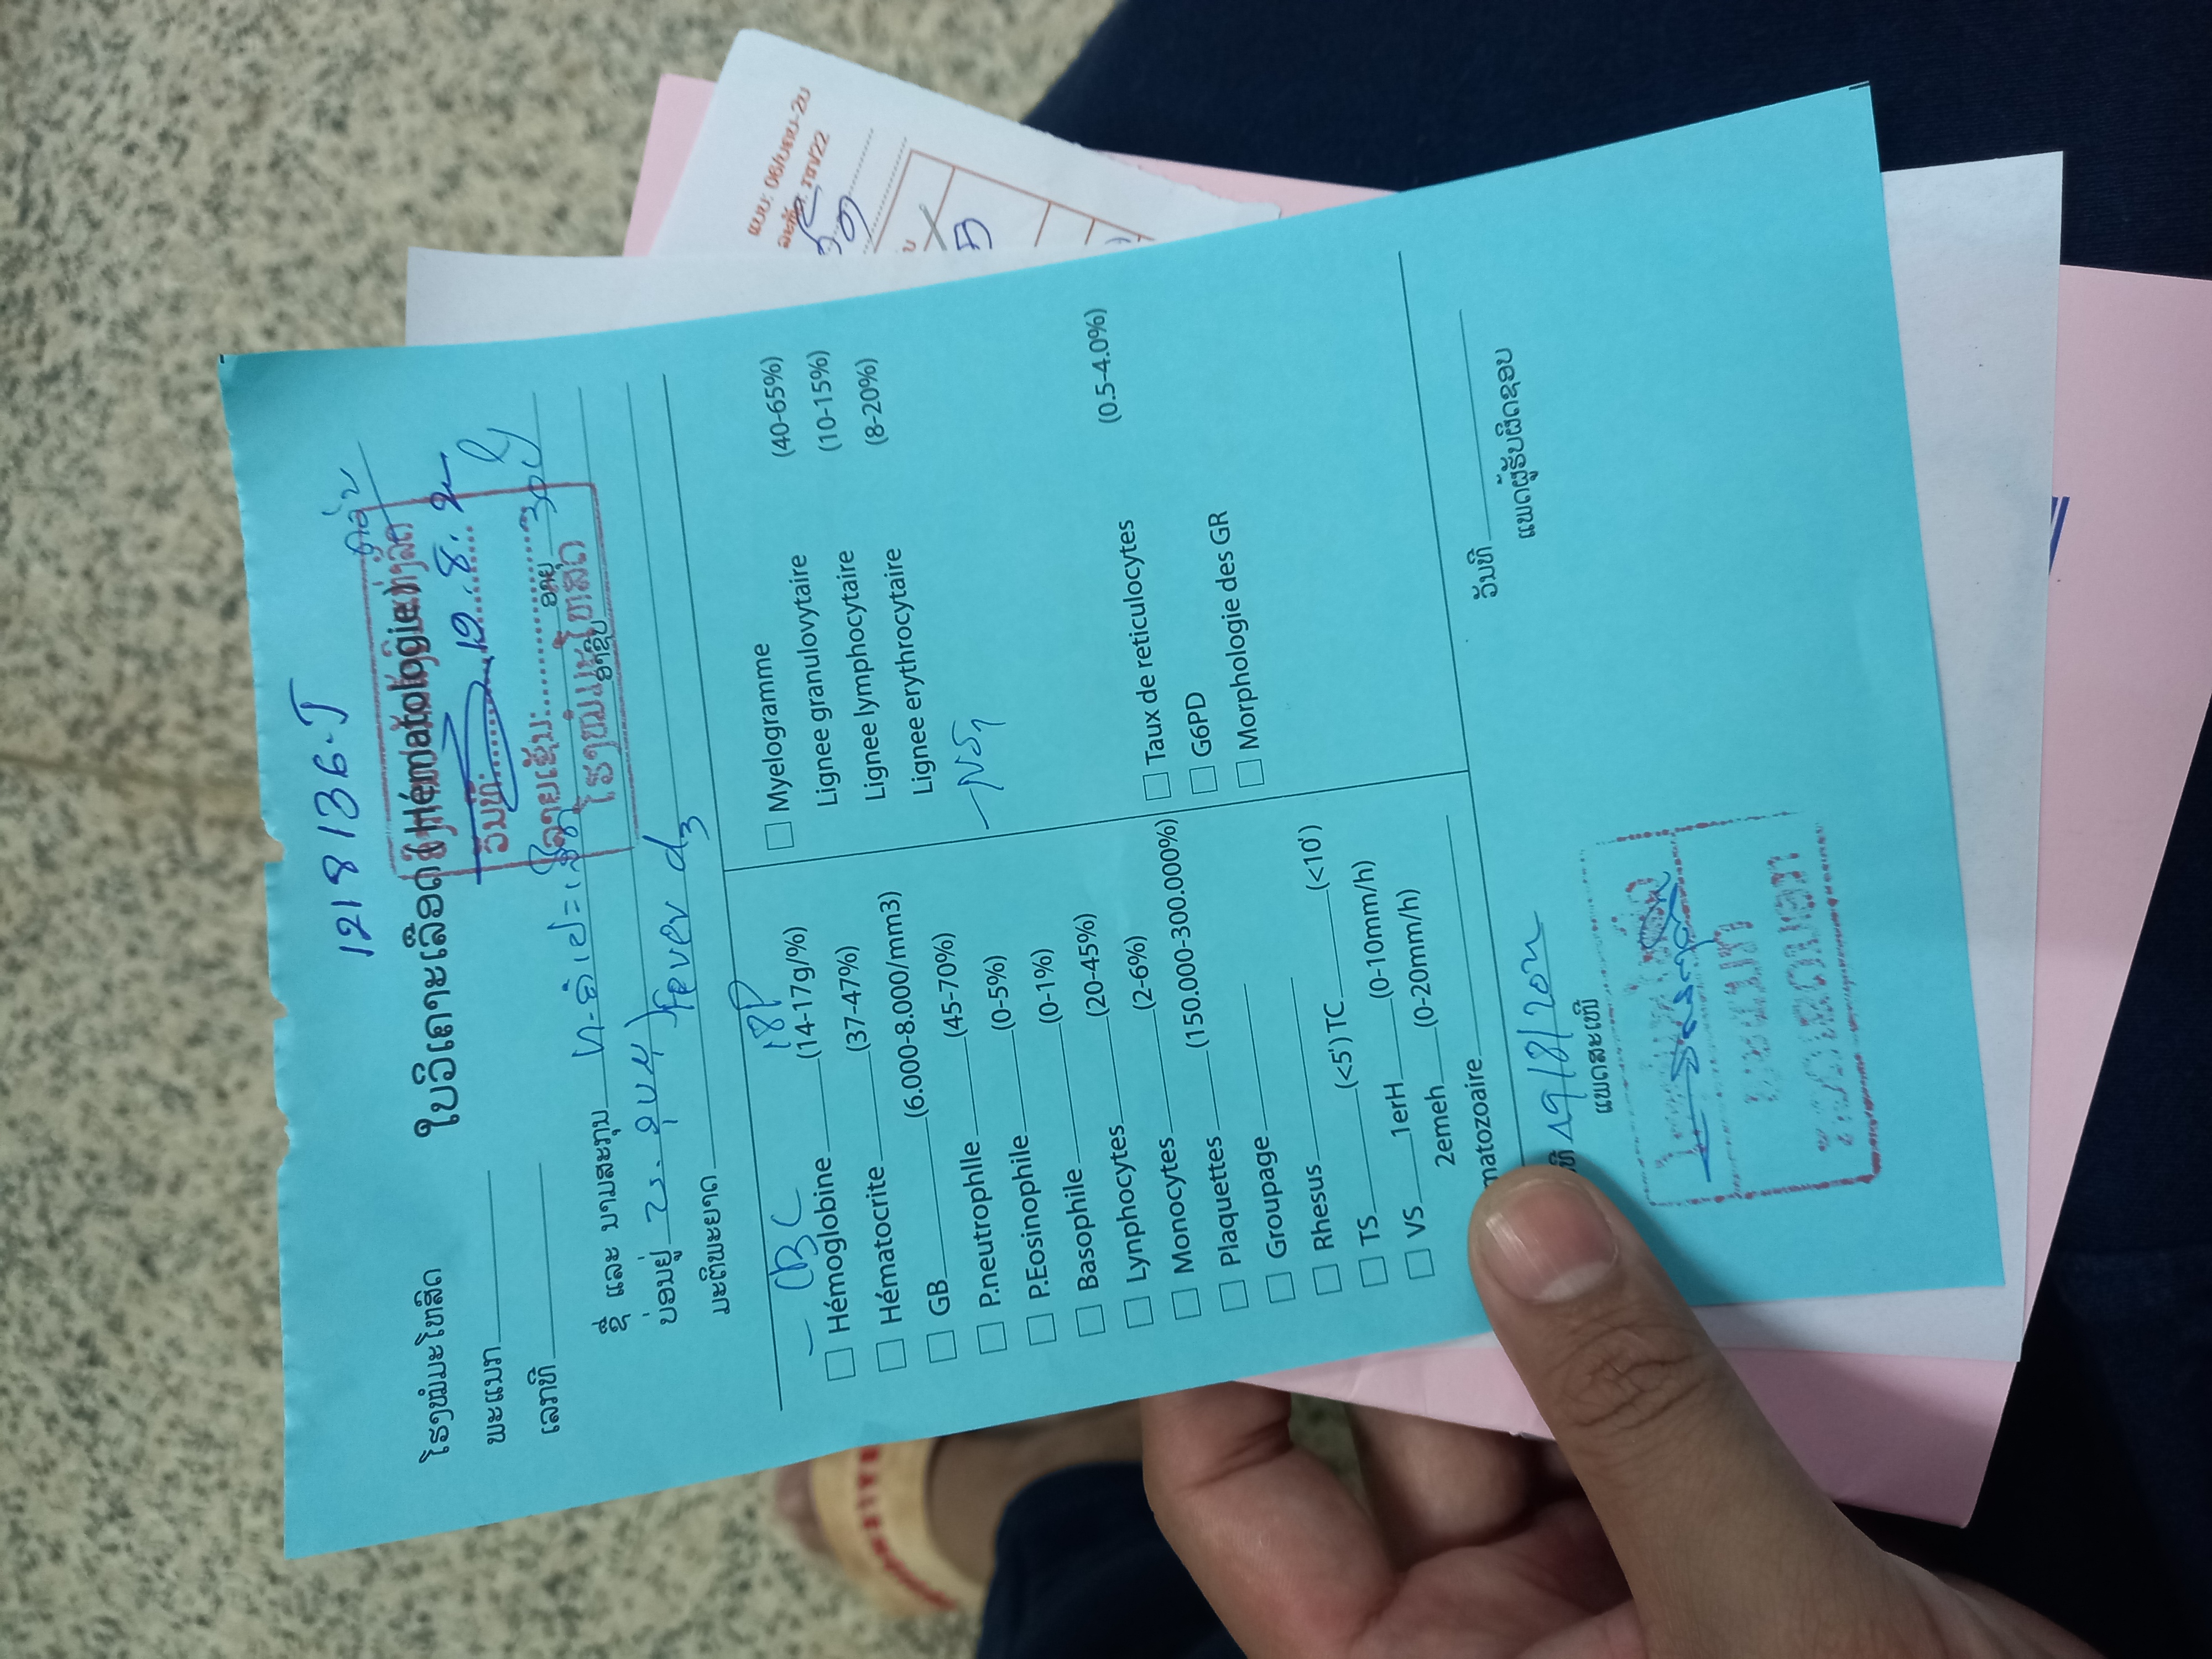 1218136-J
ດ່ວນ
ໂຮງໝໍມະໂຫສົດ
ໃບວິເຄາະເລືອດ ( Hématologie )
ພະແນກ
ວັນທີ: 19.8.22
ເລກທີ
ລາຍເຊັນ:
ໂຮງໝໍມະໂຫສົດ
ຊື່ ແລະ ນາມສະກຸນ ອາຍຸ 30 ປີ
ບ່ອນຢູ່ ອາຊີບ
ມະຕິພະຍາດ fever d3
- CBC
Hémoglobine (14-17g/%)
Hématocrite (37-47%)
GB (6.000-8.000/mm3)
P.neutrophlle (45-70%)
P.Eosinophile (0-5%)
Basophile (0-1%)
Lynphocytes (20-45%)
Monocytes (2-6%)
Plaquettes (150.000-300.000%)
Groupage
Rhesus
TS (<5') TC (<10')
VS 1erH (0-10mm/h)
2emeh (0-20mm/h)
matozoaire
Myelogramme
Lignee granulovytaire (40-65%)
Lignee lymphocytaire (10-15%)
Lignee erythrocytaire (8-20%)
- NS1
Taux de reticulocytes (0.5-4.0%)
G6PD
Morphologie des GR
ທີ 19/8/2022
ແພດສະເໜີ
ພະແນກ
ກວດເຂດນອກ
ວັນທີ
ແພດຜູ້ຮັບຜິດຊອບ
ແບບ: 06/ບຄບ-2ບ